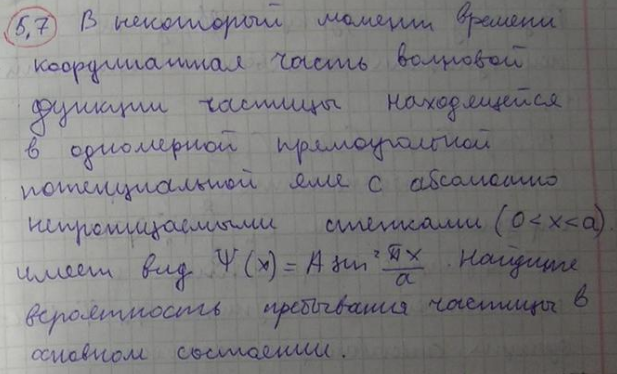 5,7 В некоторый момент времени
координатная часть волновой
функции частицы находящейся
в одномерной прямоугольной
потенциальной яме с абсолютно
непроницаемыми стенками (0<x<a).
имеет вид Ψ(x) = A sin² πx/a. Найдите
вероятность пребывания частицы в
основном состоянии.